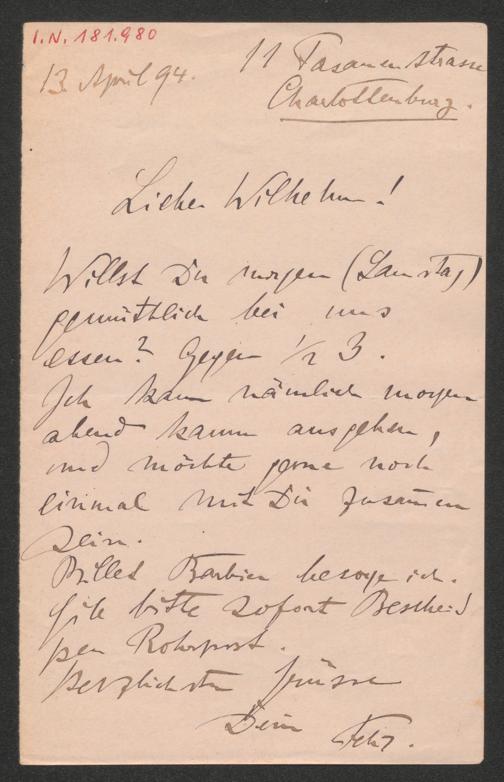 I.N. 181.980
13. April 94.
11 Fasanenstrasse
Charlottenburg.
Lieber Wilhelm!
Willst Du morgen (Samstag)
gemüthlich bei uns
essen? Gegen 1/2 3.
Ich kann nämlich morgen
abend kaum ausgehen,
und möchte gerne noch
einmal mit Dir zusam̄en
sein.
Billet Barbier besorge ich.
Gib bitte sofort Bescheid
per Rohrpost.
Herzlichsten Grüsse
Dein